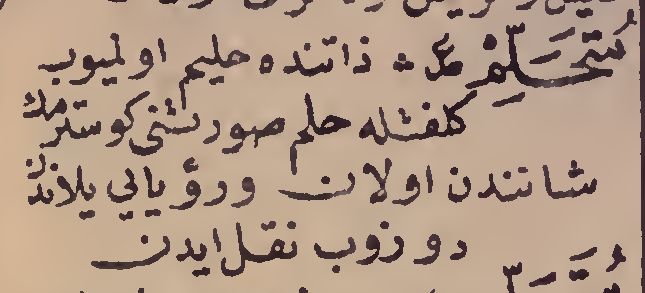 مُتَحَلِّمْ ع ذاتنده حليم اولميوب
كلفتله حلم صورتنى كوسترمك
شانندن اولان ورؤيايى يلاندن
دوزوب نقل ايدن